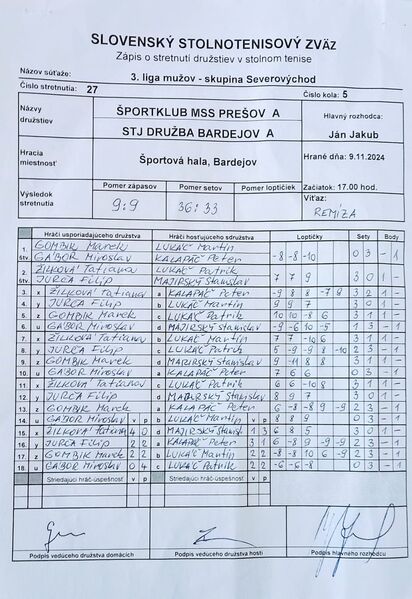 SLOVENSKÝ STOLNOTENISOVÝ ZVÄZ
Zápis o stretnutí družstiev v stolnom tenise
Názov súťaže: 3. liga mužov - skupina Severovýchod
Číslo stretnutia: 27 Číslo kola: 5
Názvy družstiev ŠPORTKLUB MSS PREŠOV A Hlavný rozhodca:
STJ DRUŽBA BARDEJOV A Ján Jakub
Hracia miestnosť Športová hala, Bardejov Hrané dňa: 9.11.2024
Výsledok stretnutia Pomer zápasov Pomer setov Pomer loptičiek Začiatok: 17.00 hod.
9:9 36:33 Víťaz: REMÍZA
Hráči usporiadajúceho družstva Hráči hosťujúceho družstva Loptičky Sety Body
1. štv. GOMBIK Marek LUKÁČ Martin
GÁBOR Miroslav KALAPÁČ Peter -8 -8 -10 0 3 - 1
2. štv. ŽILKOVÁ Tatiana LUKÁČ Patrik
JURČA Filip MAJIRSKÝ Stanislav 7 7 9 3 0 1 -
3. x ŽILKOVÁ Tatiana a KALAPÁČ Peter -9 8 8 -7 8 3 2 1 -
4. y JURČA Filip b LUKÁČ Martin 9 9 7 3 0 1 -
5. z GOMBIK Marek c LUKÁČ Patrik 10 10 -8 6 3 1 1 -
6. u GÁBOR Miroslav d MAJIRSKÝ Stanislav -9 -6 10 -5 1 3 - 1
7. x ŽILKOVÁ Tatiana b LUKÁČ Martin 7 7 -10 6 3 1 1 -
8. y JURČA Filip c LUKÁČ Patrik 5 -5 -9 8 -10 2 3 - 1
9. z GOMBIK Marek d MAJIRSKÝ Stanislav 9 -11 8 8 3 1 1 -
10. u GÁBOR Miroslav a KALAPÁČ Peter 7 6 6
11. x ŽILKOVÁ Tatiana c LUKÁČ Patrik 6 6 -10 8 3 1 1 -
12. y JURČA Filip d MAJIRSKÝ Stanislav 8 9 7 3 0 1 -
13. z GOMBIK Marek a KALAPÁČ Peter 6 -8 -8 9 -9 2 3 - 1
14. u GÁBOR Miroslav v p b LUKÁČ Martin v p
15. x ŽILKOVÁ Tatiana 4 0 d MAJIRSKÝ Stanisl. 1 3 6 8 5 3 0 1 -
16. y JURČA Filip 2 2 a KALAPÁČ Peter 3 1 6 8 -9 -9 -9 2 3 - 1
17. z GOMBIK Marek 2 2 b LUKÁČ Martin 2 2
18. u GÁBOR Miroslav 0 4 c LUKÁČ Patrik 2 2 -6 -6 -8 0 3 - 1
Striedajúci hráč-úspešnosť v p Striedajúci hráč-úspešnosť v p
Podpis vedúceho družstva domácich Podpis vedúceho družstva hostí Podpis hlavného rozhodcu